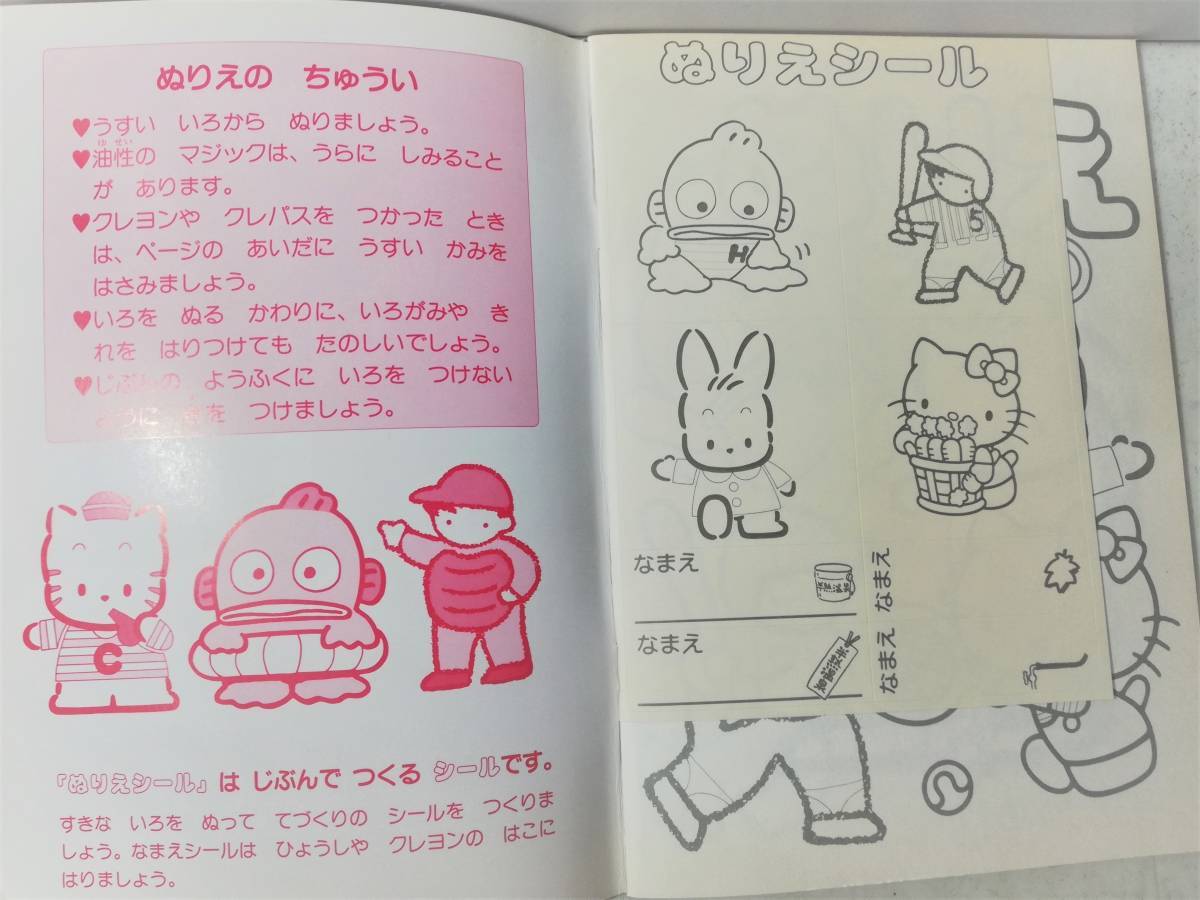 ぬりえの ちゅうい
♥うすい いろから ぬりましょう。
ゆ せい
♥油性の マジックは、うらに しみること
が あります。
♥クレヨンや クレパスを つかった とき
は、ページの あいだに うすい かみを
はさみましょう。
♥いろを ぬる かわりに、いろがみや き
れを はりつけても たのしいでしょう。
♥じぶんの ようふくに いろを つけない
ように きを つけましょう。
C
『ぬりえシール』は じぶんで つくる シールです。
すきな いろを ぬって てづくりの シールを つくりま
しょう。なまえシールは ひょうしや クレヨンの はこに
はりましょう。
ぬりえシール
H
5
なまえ
なまえ
なまえ
なまえ
え